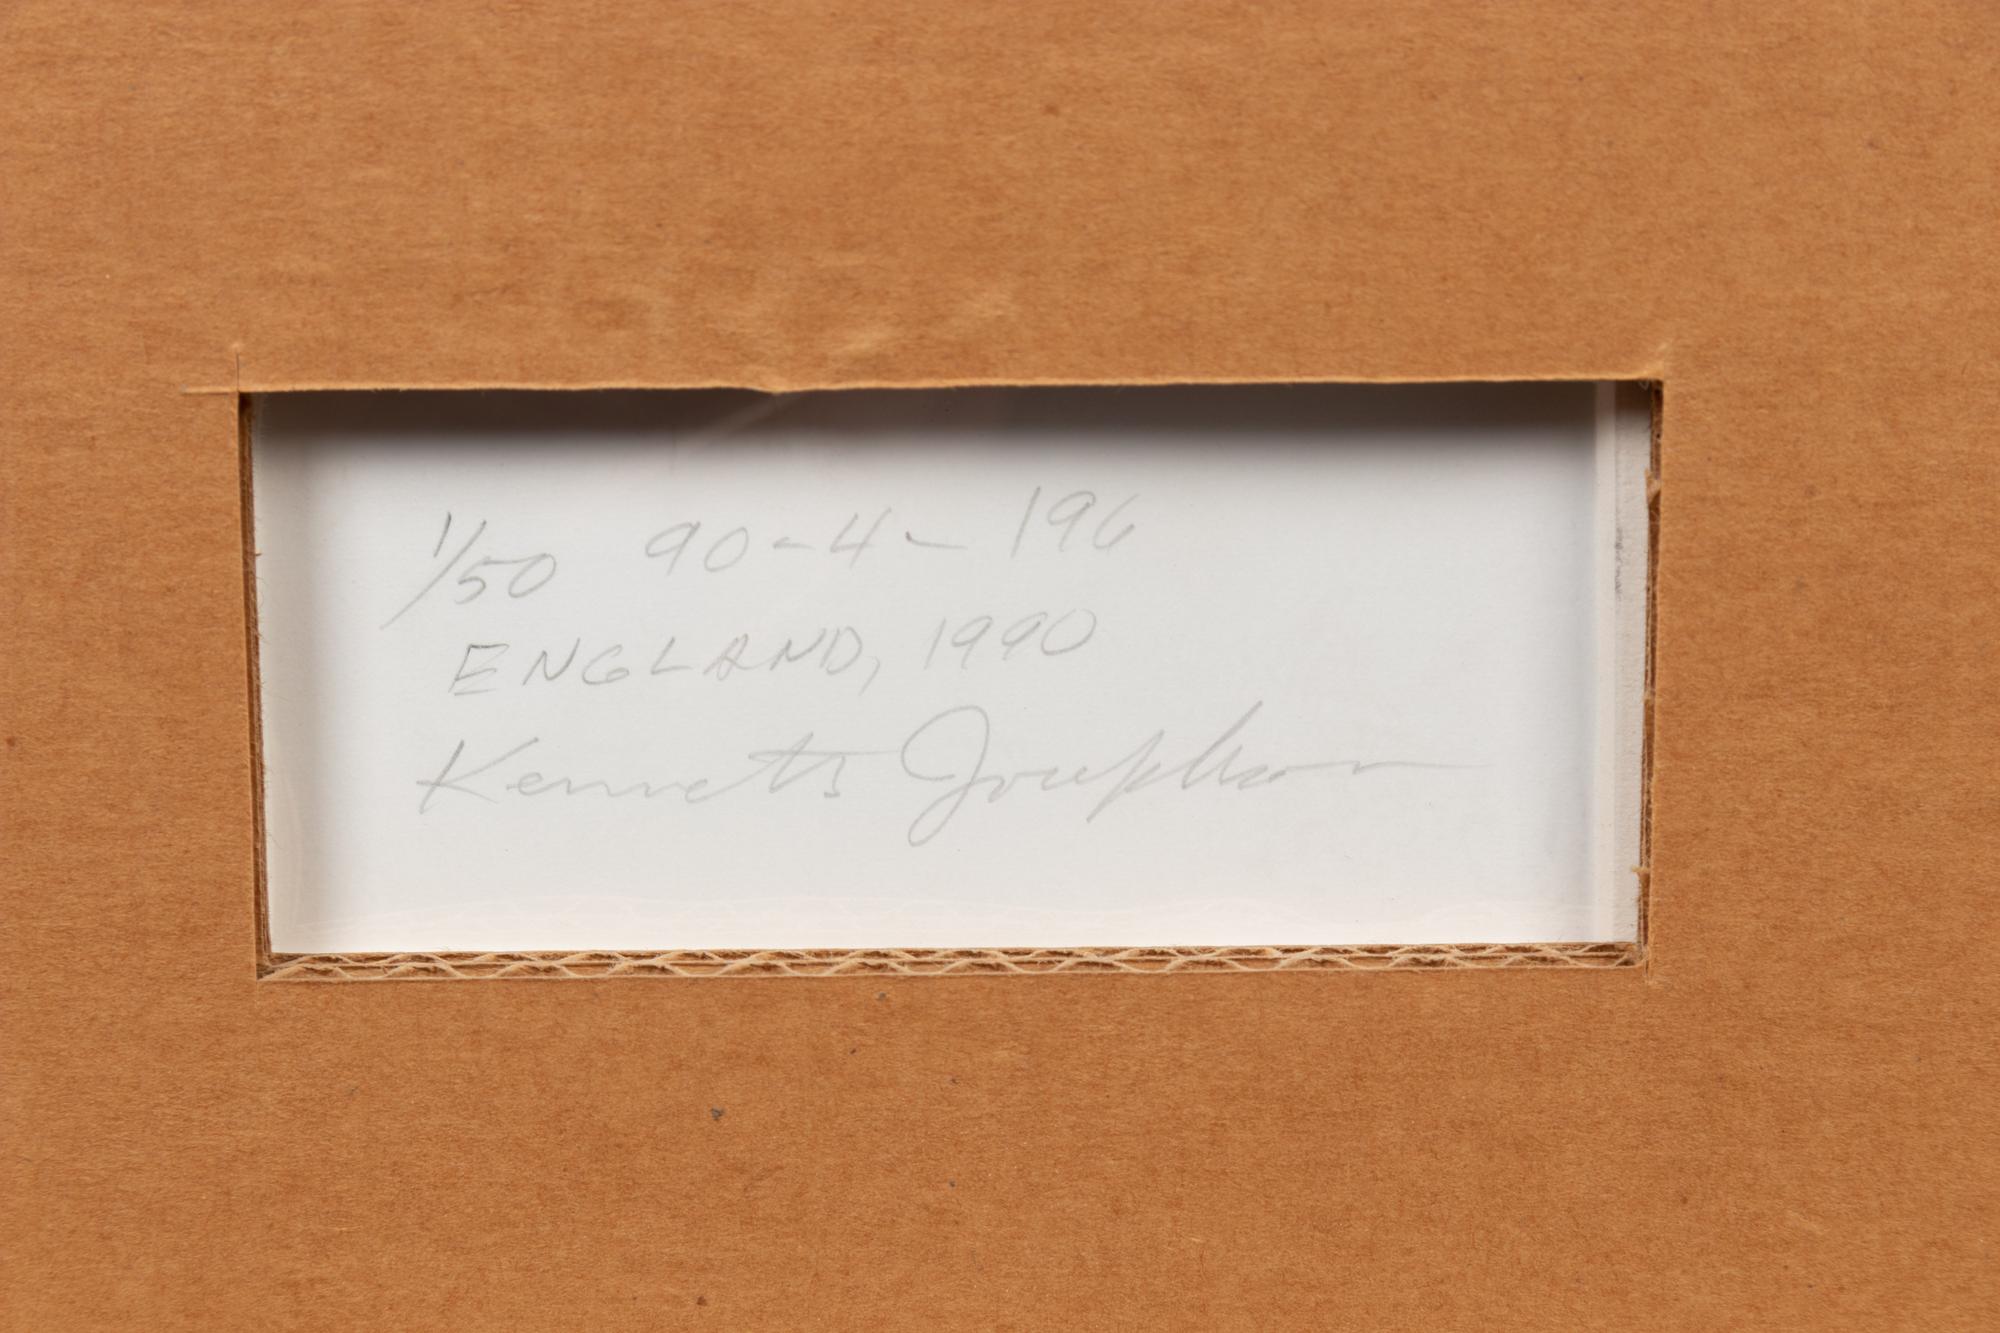 1/50 90-4-196
ENGLAND, 1990
Kenneth Josephson